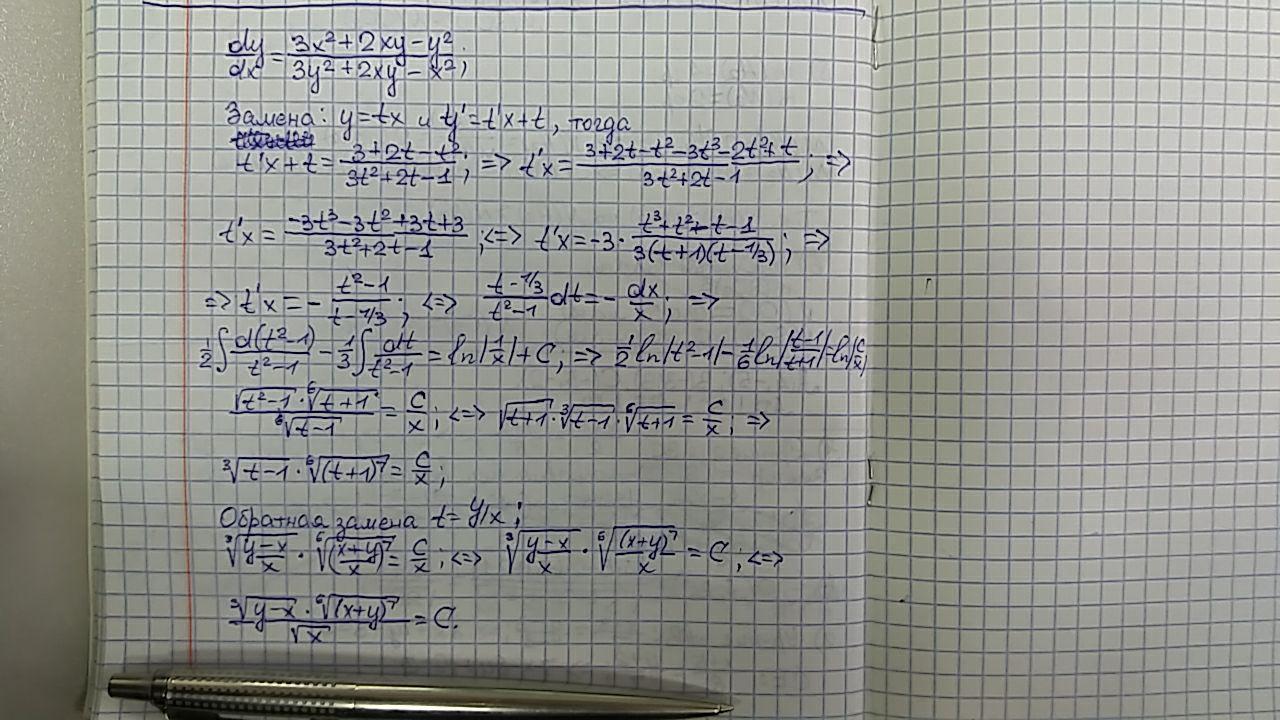 dy/dx = (3x²+2xy-y²)/(3y²+2xy-x²);
Замена: y=tx и y'=t'x+t, тогда
t'x+t = (3+2t-t²)/(3t²+2t-1); => t'x = (3+2t-t²-3t³-2t²+t)/(3t²+2t-1); =>
t'x = (-3t³-3t²+3t+3)/(3t²+2t-1); <=> t'x = -3·(t³+t²-t-1)/(3(t+1)(t-1/3)); =>
=> t'x = -(t²-1)/(t-1/3); <=> (t-1/3)/(t²-1) dt = -dx/x; =>
1/2 ∫ d(t²-1)/(t²-1) - 1/3 ∫ dt/(t²-1) = ln|1/x|+C; => 1/2 ln|t²-1| - 1/6 ln|(t-1)/(t+1)| = ln|C/x|
(√(t²-1) · ⁶√(t+1))/(⁶√(t-1)) = C/x; <=> √(t+1) · ³√(t-1) · ⁶√(t+1) = C/x; =>
³√(t-1) · ⁶√((t+1)⁷) = C/x;
Обратная замена t=y/x;
³√((y-x)/x) · ⁶√(((x+y)/x)⁷) = C/x; <=> ³√((y-x)/x) · ⁶√((x+y)⁷/x) = C; <=>
(³√(y-x) · ⁶√((x+y)⁷))/√x = C.